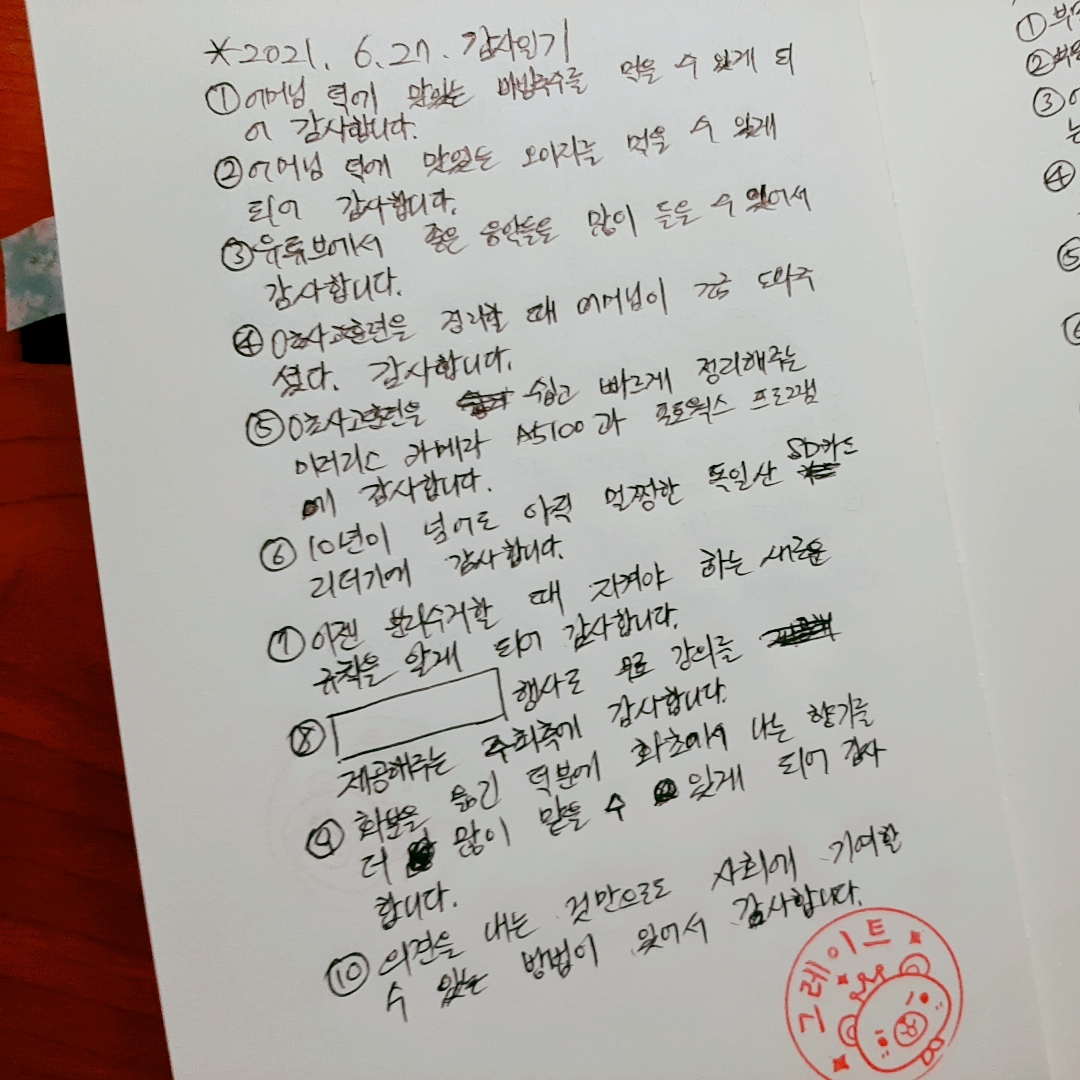 *2021. 6.27. 감사일기
① 어머님 덕에 맛있는 비빔국수를 먹을 수 있게 되
어 감사합니다.
② 어머님 덕에 맛있는 오이지를 먹을 수 있게
되어 감사합니다.
③ 유튜브에서 좋은 음악들을 많이 들을 수 있어서
감사합니다.
④ 0초사고훈련을 정리할 때 어머님이 조금 도와주
셨다. 감사합니다.
⑤ 0초사고훈련을 쉽고 빠르게 정리해주는
미러리스 카메라 A5100과 포토웍스 프로그램
에 감사합니다.
⑥ 10년이 넘어도 아직 멀쩡한 독일산 SD카드
리더기에 감사합니다.
⑦ 이젠 분리수거할 때 지켜야 하는 새로운
규칙을 알게 되어 감사합니다.
⑧ 행사로 무료 강의를
제공해주는 주최측에 감사합니다.
⑨ 화분을 옮긴 덕분에 화초에서 나는 향기를
더 많이 맡을 수 있게 되어 감사
합니다.
⑩ 의견을 내는 것만으로도 사회에 기여할
수 있는 방법이 있어서 감사합니다.
그레이트
①
②
③
④
⑤
⑥